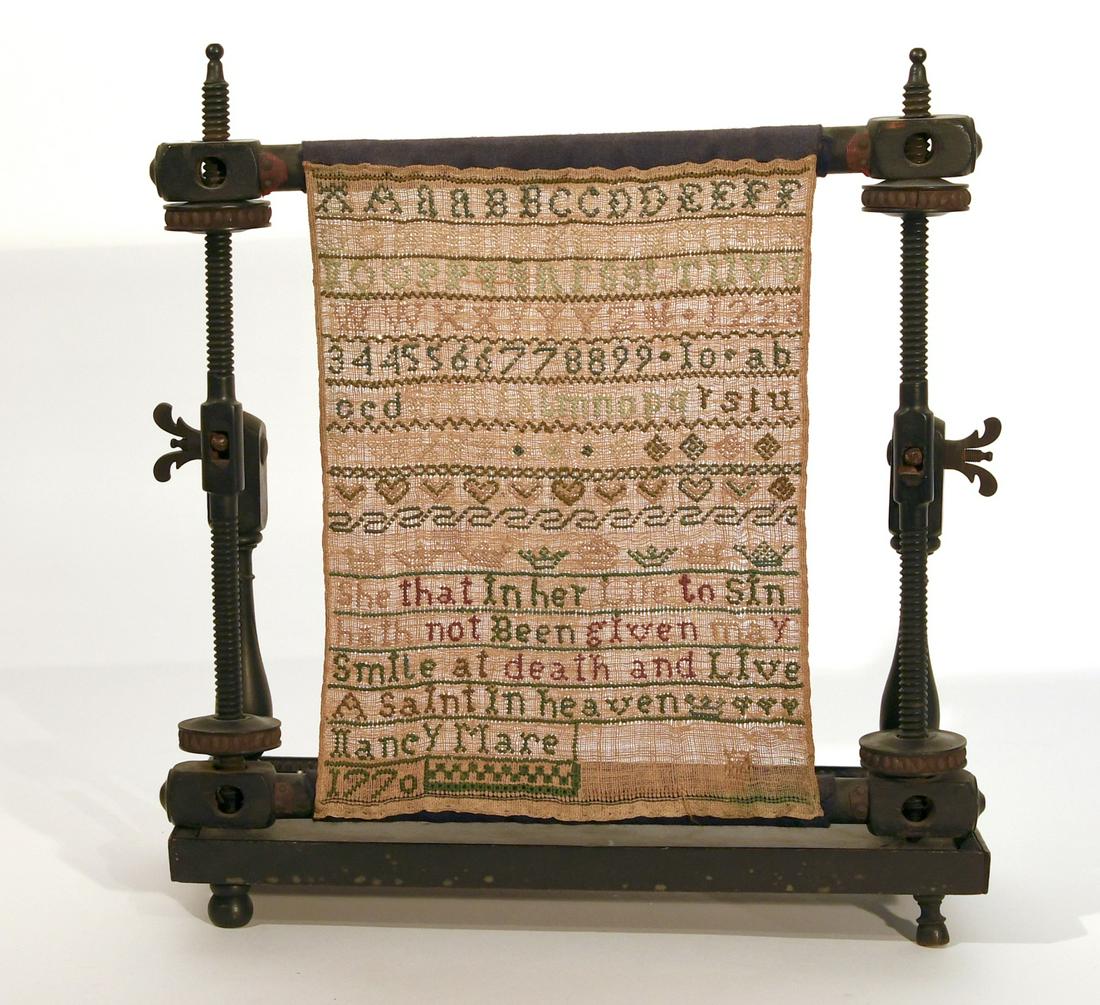 A A a a B B C C D D E E F F
T U V V
W W X X Y Y Y Z V · 1 2 2 3
3 4 4 5 5 6 6 7 7 8 8 9 9 · 10 · a b
c c d m n o p q r s t u
She that In her Life to SIn
hath not Been gIven may
SmIle at death and LIve
A saInt In heaven
Nancy Mare
1770